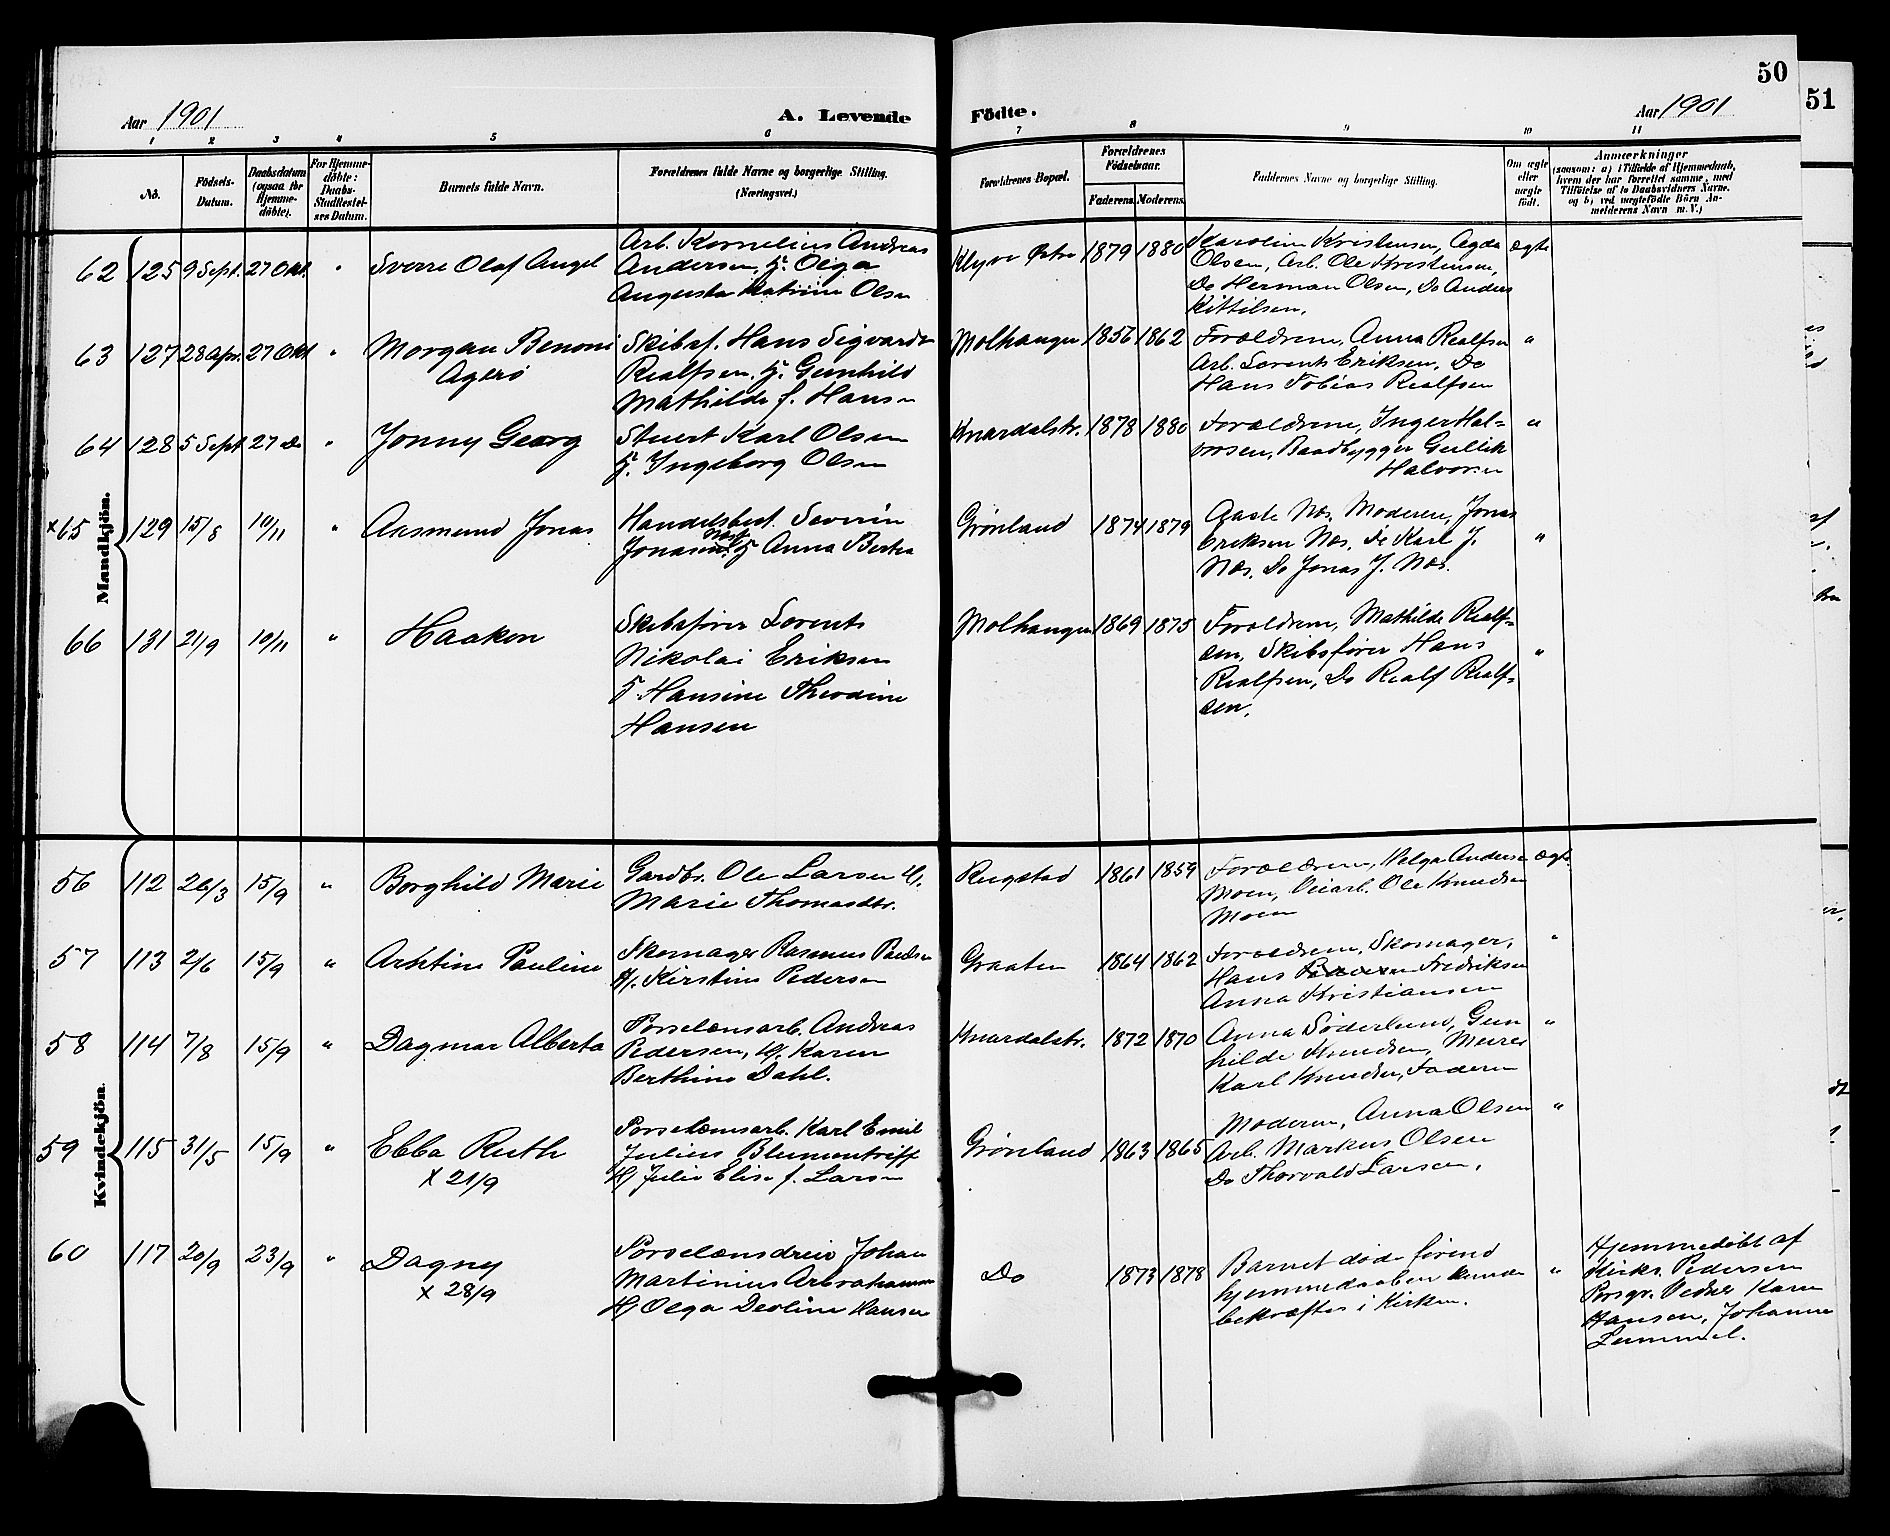 50
51
Aar 1901
A. Levende Födte.
Aar 1901
1 2 3 4 5 6 7 8 9 10 11
No.
Födsels-Datum.
Daabsdatum (ogsaa for Hjemmedöbte).
For Hjemmedöbte: Daabs-Stadfæstelses Datum.
Barnets fulde Navn.
Forældrenes fulde Navne og borgerlige Stilling. (Næringsvei.)
Forældrenes Bopæl.
Forældrenes Födselsaar.
Faderens.
Moderens.
Faddernes Navne og borgerlige Stilling.
Om ægte eller uægte födt.
Anmærkninger
(saasom: a) i Tilfælde af Hjemmedaab, hvem der har forrettet samme, med Tilföielse af to Daabsvidners Navne, og b) ved uægtefödte Börn Anmelderens Navn m. V.)
Mandkjön.
62 125 9 Sept. 27 Okt. " Sverre Olaf Angel
Arb. Kornelius Andreas
Andersen, H. Olga
Augusta Katrine Olsen
Klyve Østre 1879 1880
Karoline Kristensen, Agda
Olsen, Arb. Ole Kristensen,
Do Herman Olsen, Do Anders
Kittilsen.
ægte
63 127 28 Apr. 27 Okt " Morgan Benoni
Agerø
Skibsf. Hans Sigvardn
Realfsen, H. Gunhild
Mathilde f. Hansen
Molhaugen 1856 1862
Forældrene, Anna Realfsen
Arb. Lorents Eriksen, Do
Hans Tobias Realfsen
"
64 128 5 Sept 27 Do " Jonny Georg
Stuert Karl Olsen
H. Ingeborg Olsen
Knardalstr. 1878 1880
Forældrene, Inger Hal-
vorsen, Baadbygger Gullik
Halvorsen
"
x 65 129 15/8 10/11 " Aasmund Jonas
Handelsbest. Severin
Jonasen Næs, H Anna Bertea
Grønland 1874 1879
Aaste Næs, Moderen, Jonas
Eriksen Næs, Do Karl J.
Næs, Do Jonas J. Næs.
"
66 131 21/9 10/11 " Haakon
Skibsfører Lorents
Nikolai Eriksen
H. Hansine Theodine
Hansen
Molhaugen 1869 1875
Forældrene, Mathilde Realf-
sen, Skibsfører Hans
Realfsen, Do Realf Realf-
sen.
"
Kvindekjön
56 112 26/3 15/9 " Borghild Marie
Gardbr. Ole Larsen H.
Marie Thomasdtr.
Rugstad 1861 1859
Forældrene, Helga Andersen
Moen, Veiarb. Ole Knudsen
Moen
ægte
57 113 2/6 15/9 " Arntine Pauline
Skomager Rasmus Paulsen
H. Kirstine Pedersen
Graaten 1864 1862
Forældrene, Skomager,
Hans Pedersen Fredriksen
Anna Kristiansen
"
58 114 7/8 15/9 " Dagmar Alberta
Porselænsarb. Andreas
Pedersen, H. Karen
Berthine Dahl.
Knardalstr. 1872 1870
Anna Søderlund, Gun
hilde Knudsen, Murer
Karl Knudsen, Faderen
"
59 115 31/5 15/9 " Ebba Ruth
x 21/9
Porselænsarb. Karl Emil
Julius Blumentritt
H Julie Elise f. Larsen
Grønland 1863 1865
Moderen, Anna Olsen
Arb. Markus Olsen
Do Thorvald Larsen.
"
60 117 20/9 23/9 " Dagny
x 28/9
Porselænsdreier Johan
Martinius Abrahamsen
H Olga Deoline Hansen
Do 1873 1878
Barnet døde førend
hjemmedaaben kunde
bekræftes i Kirken.
"
Hjemmedøbt af
Kirkes. Pedersen
Porsgr. Vidner Karen
Hansen, Johanne
Lummel.